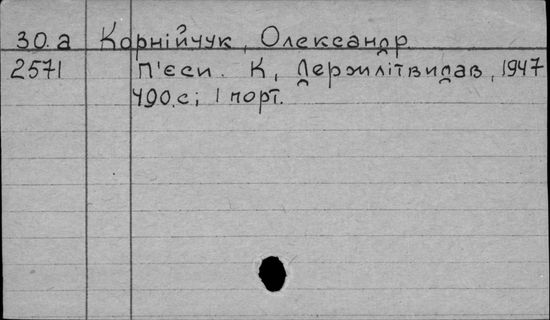 30.а Корнійчук, Олександр.
2571 П'єси. К, Держлітвидав, 1947
490.с; 1 порт.